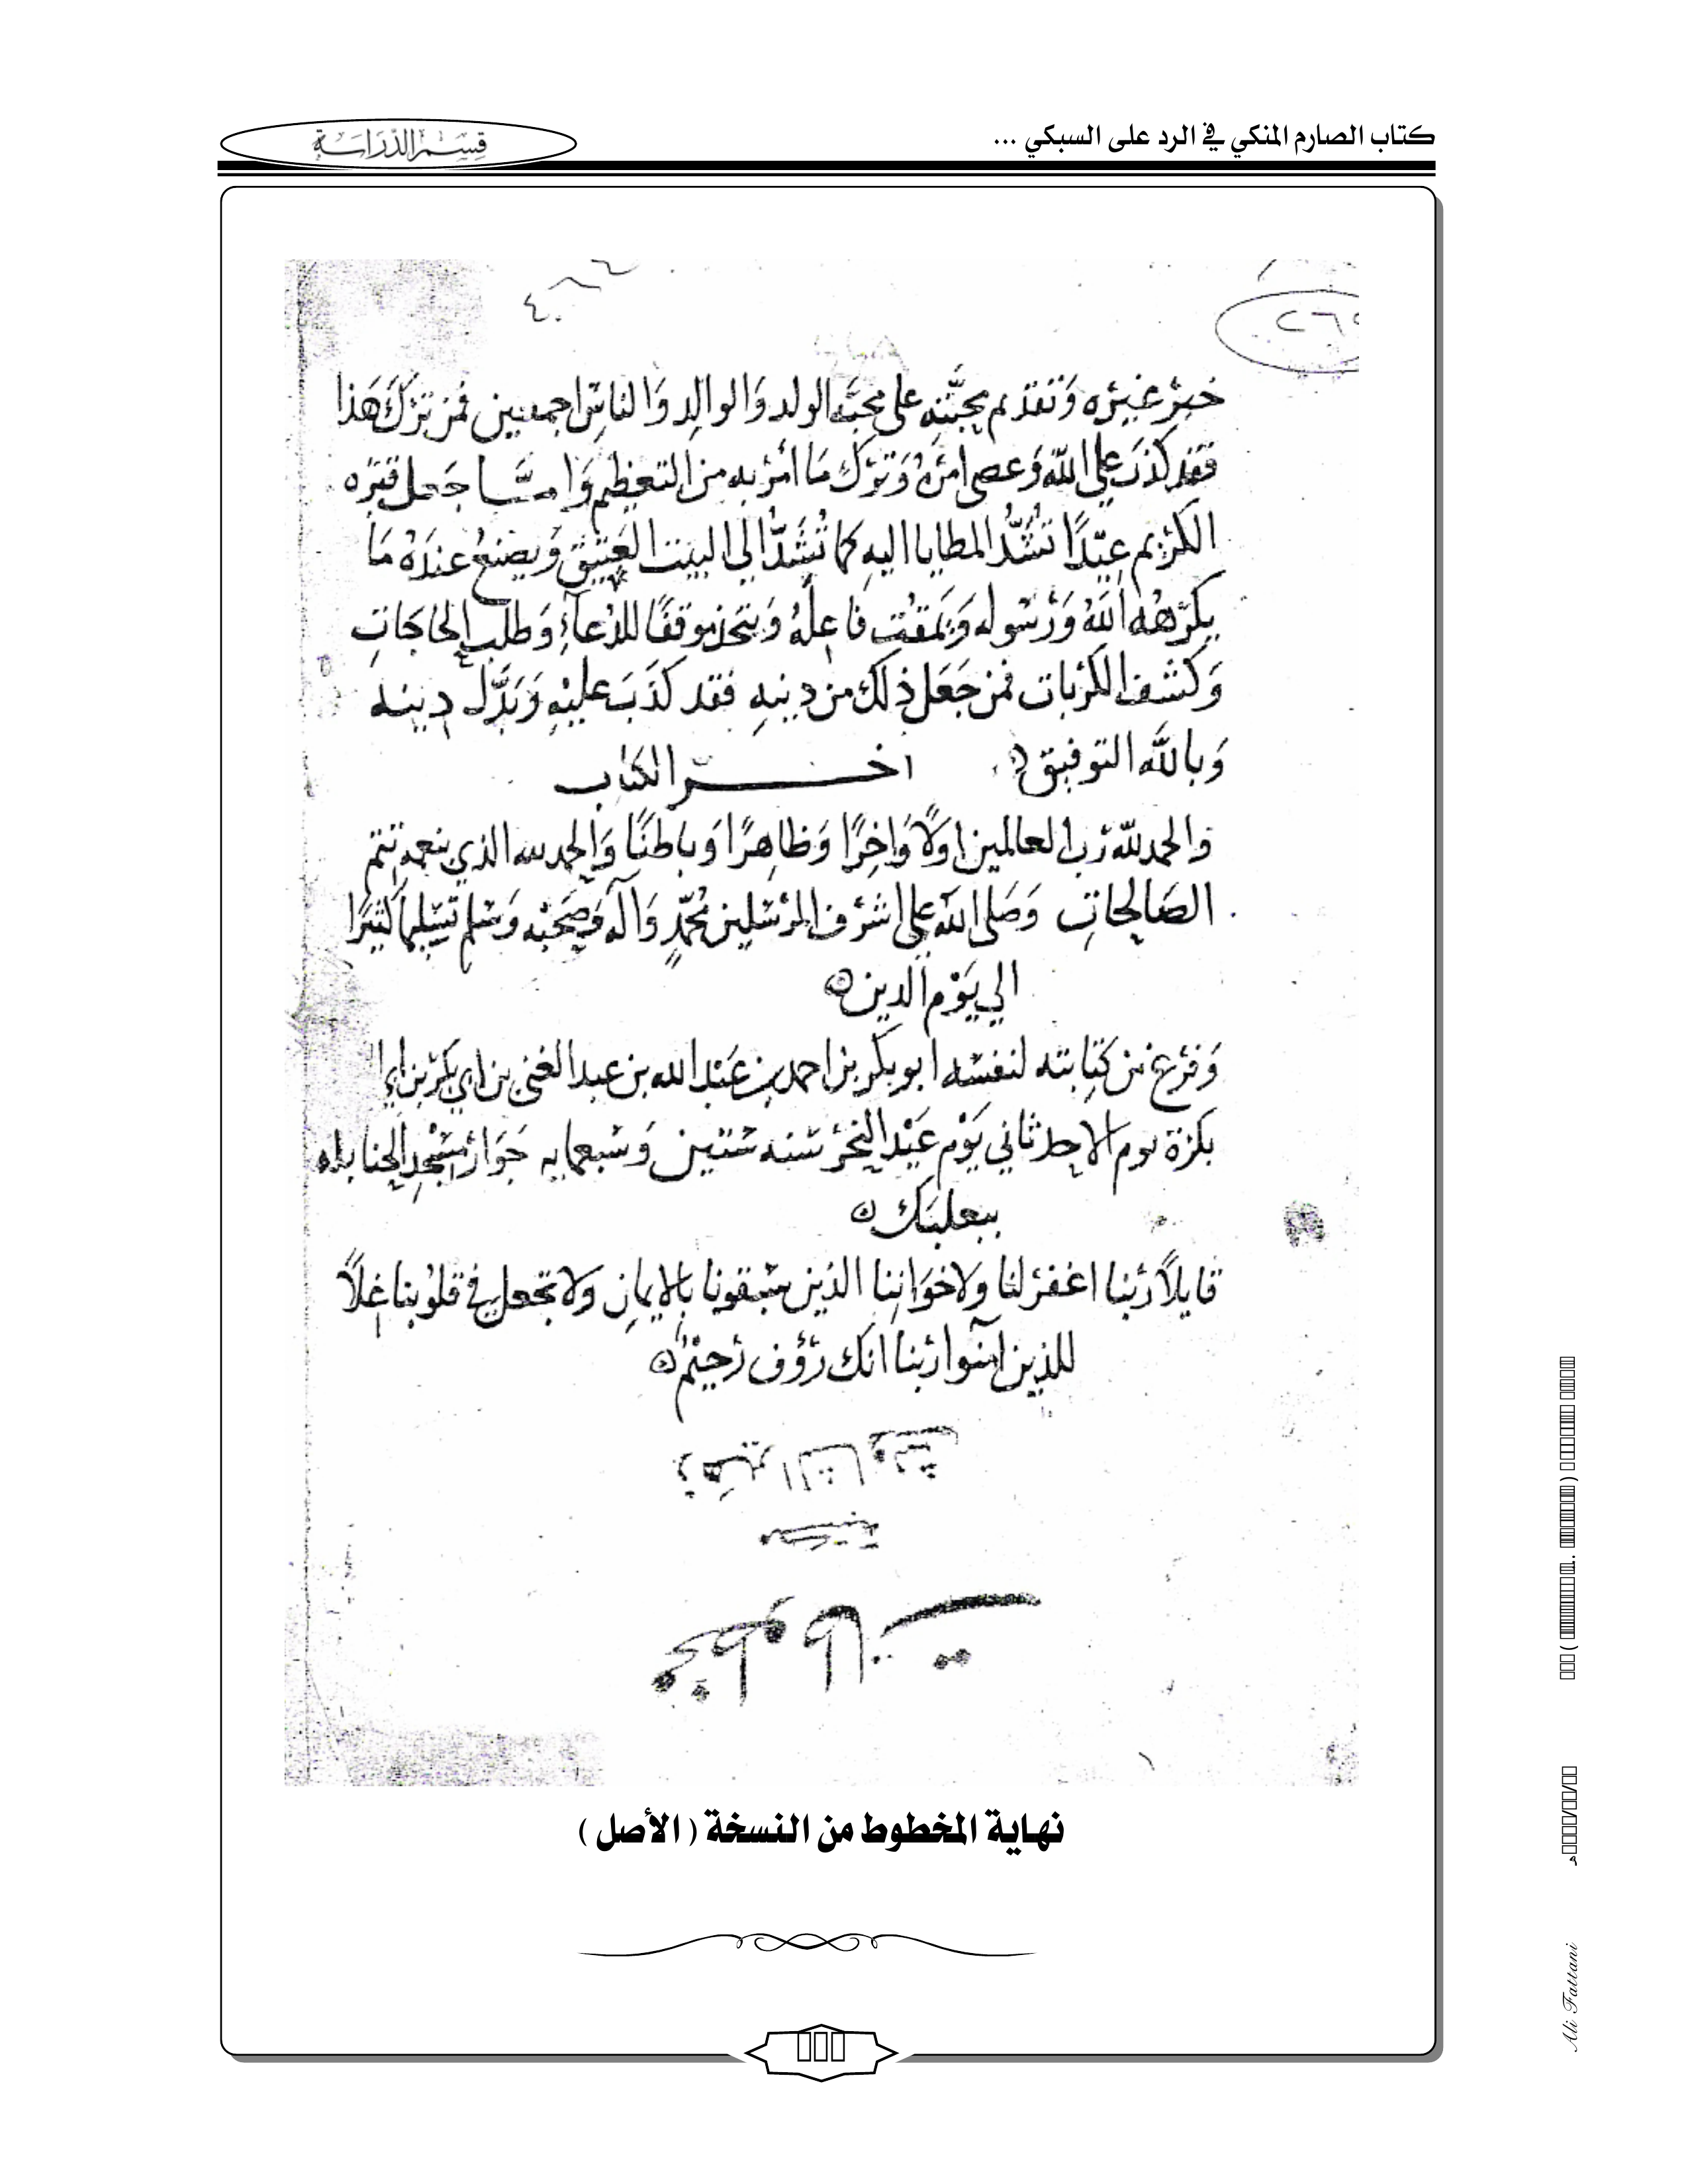 كتاب الصارم المنكي في الرد على السبكي ...
قسم الدراسة
خبر غيره وَتقدم محبَّته على محبَّة الولد وَالوالِد وَالناس اجمعين فمن ترَك هَذا
فقد كذبَ على اللّه وَعصى امرَهُ وَترَك مَا امرَ به من التعظيم وَامــا جَعل قبره
الكريم عيدًا تُشَدُّ المطايا اليهِ كما تُشَدُّ الى البيت العَتيق وَيصنعُ عندَهُ مَا
يكرَهُه اللّهُ وَرَسوله وَيَمقت فاعِلهُ وَيتخذ موقفًا للدعاءِ وَطلب الحاجَاتِ
وَكشف الكربات فمن جَعَل ذلك من دينهِ فقد كذَبَ عليْهِ وَبَدَّل دينه
وَبالله التوفيق
اخــر الكتاب
وَالحمد للّه رَب العالمين اوَلاً وَاخِرًا وَظاهِرًا وَباطنًا وَالحمد لله الذي بنعمته تتم
الصَالحاتِ وَصَلى الله على اشرَف المرْسَلين محُمّدٍ وَآله وَصَحبْه وَسَلم تسْليما كثيرًا
الي يَوْم الدين
وَفرَغ من كتابته لنفسه ابو بكر بن احمد بن عَبْد الله بن عبد الغني بن ابي بكر بن ابي
بكرَة يوم الاحد ثاني يَوْم عَيْد النحْر سَنه سَتين وَسَبعمايه جَوَار مسْجد الحنابله
ببعلبَك
قايلاً رَبنا اغفرْ لنا ولاخوَاننا الذين سَبقونا بالايمانِ ولا تجعل في قلوُبنا غِلاً
للذين امنوا رَبنا انك رَؤف رَحيْم
زهير الشاويش
مكتبة
مخطوطات
نهاية المخطوط من النسخة ( الأصل )
Ali Fattani